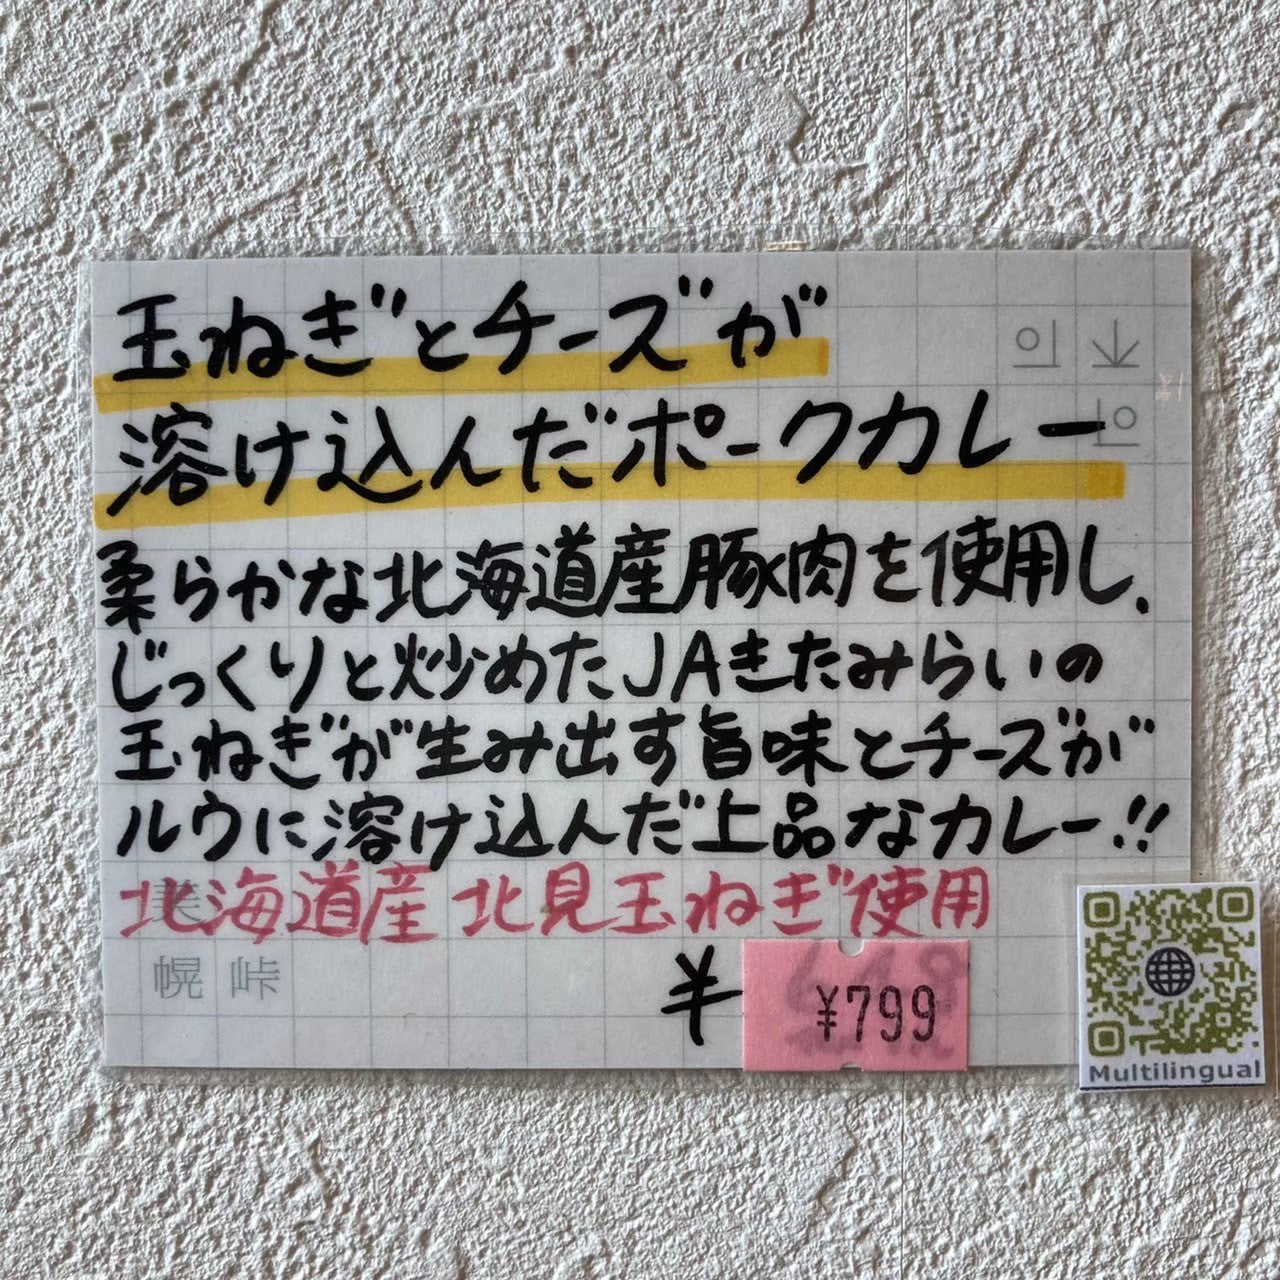 玉ねぎとチーズが
溶け込んだポークカレー
柔らかな北海道産豚肉を使用し、
じっくりと炒めたJAきたみらいの
玉ねぎが生み出す旨味とチーズが
ルウに溶け込んだ上品なカレー!!
北海道産 北見玉ねぎ使用
幌 峠
¥
¥799
Multilingual